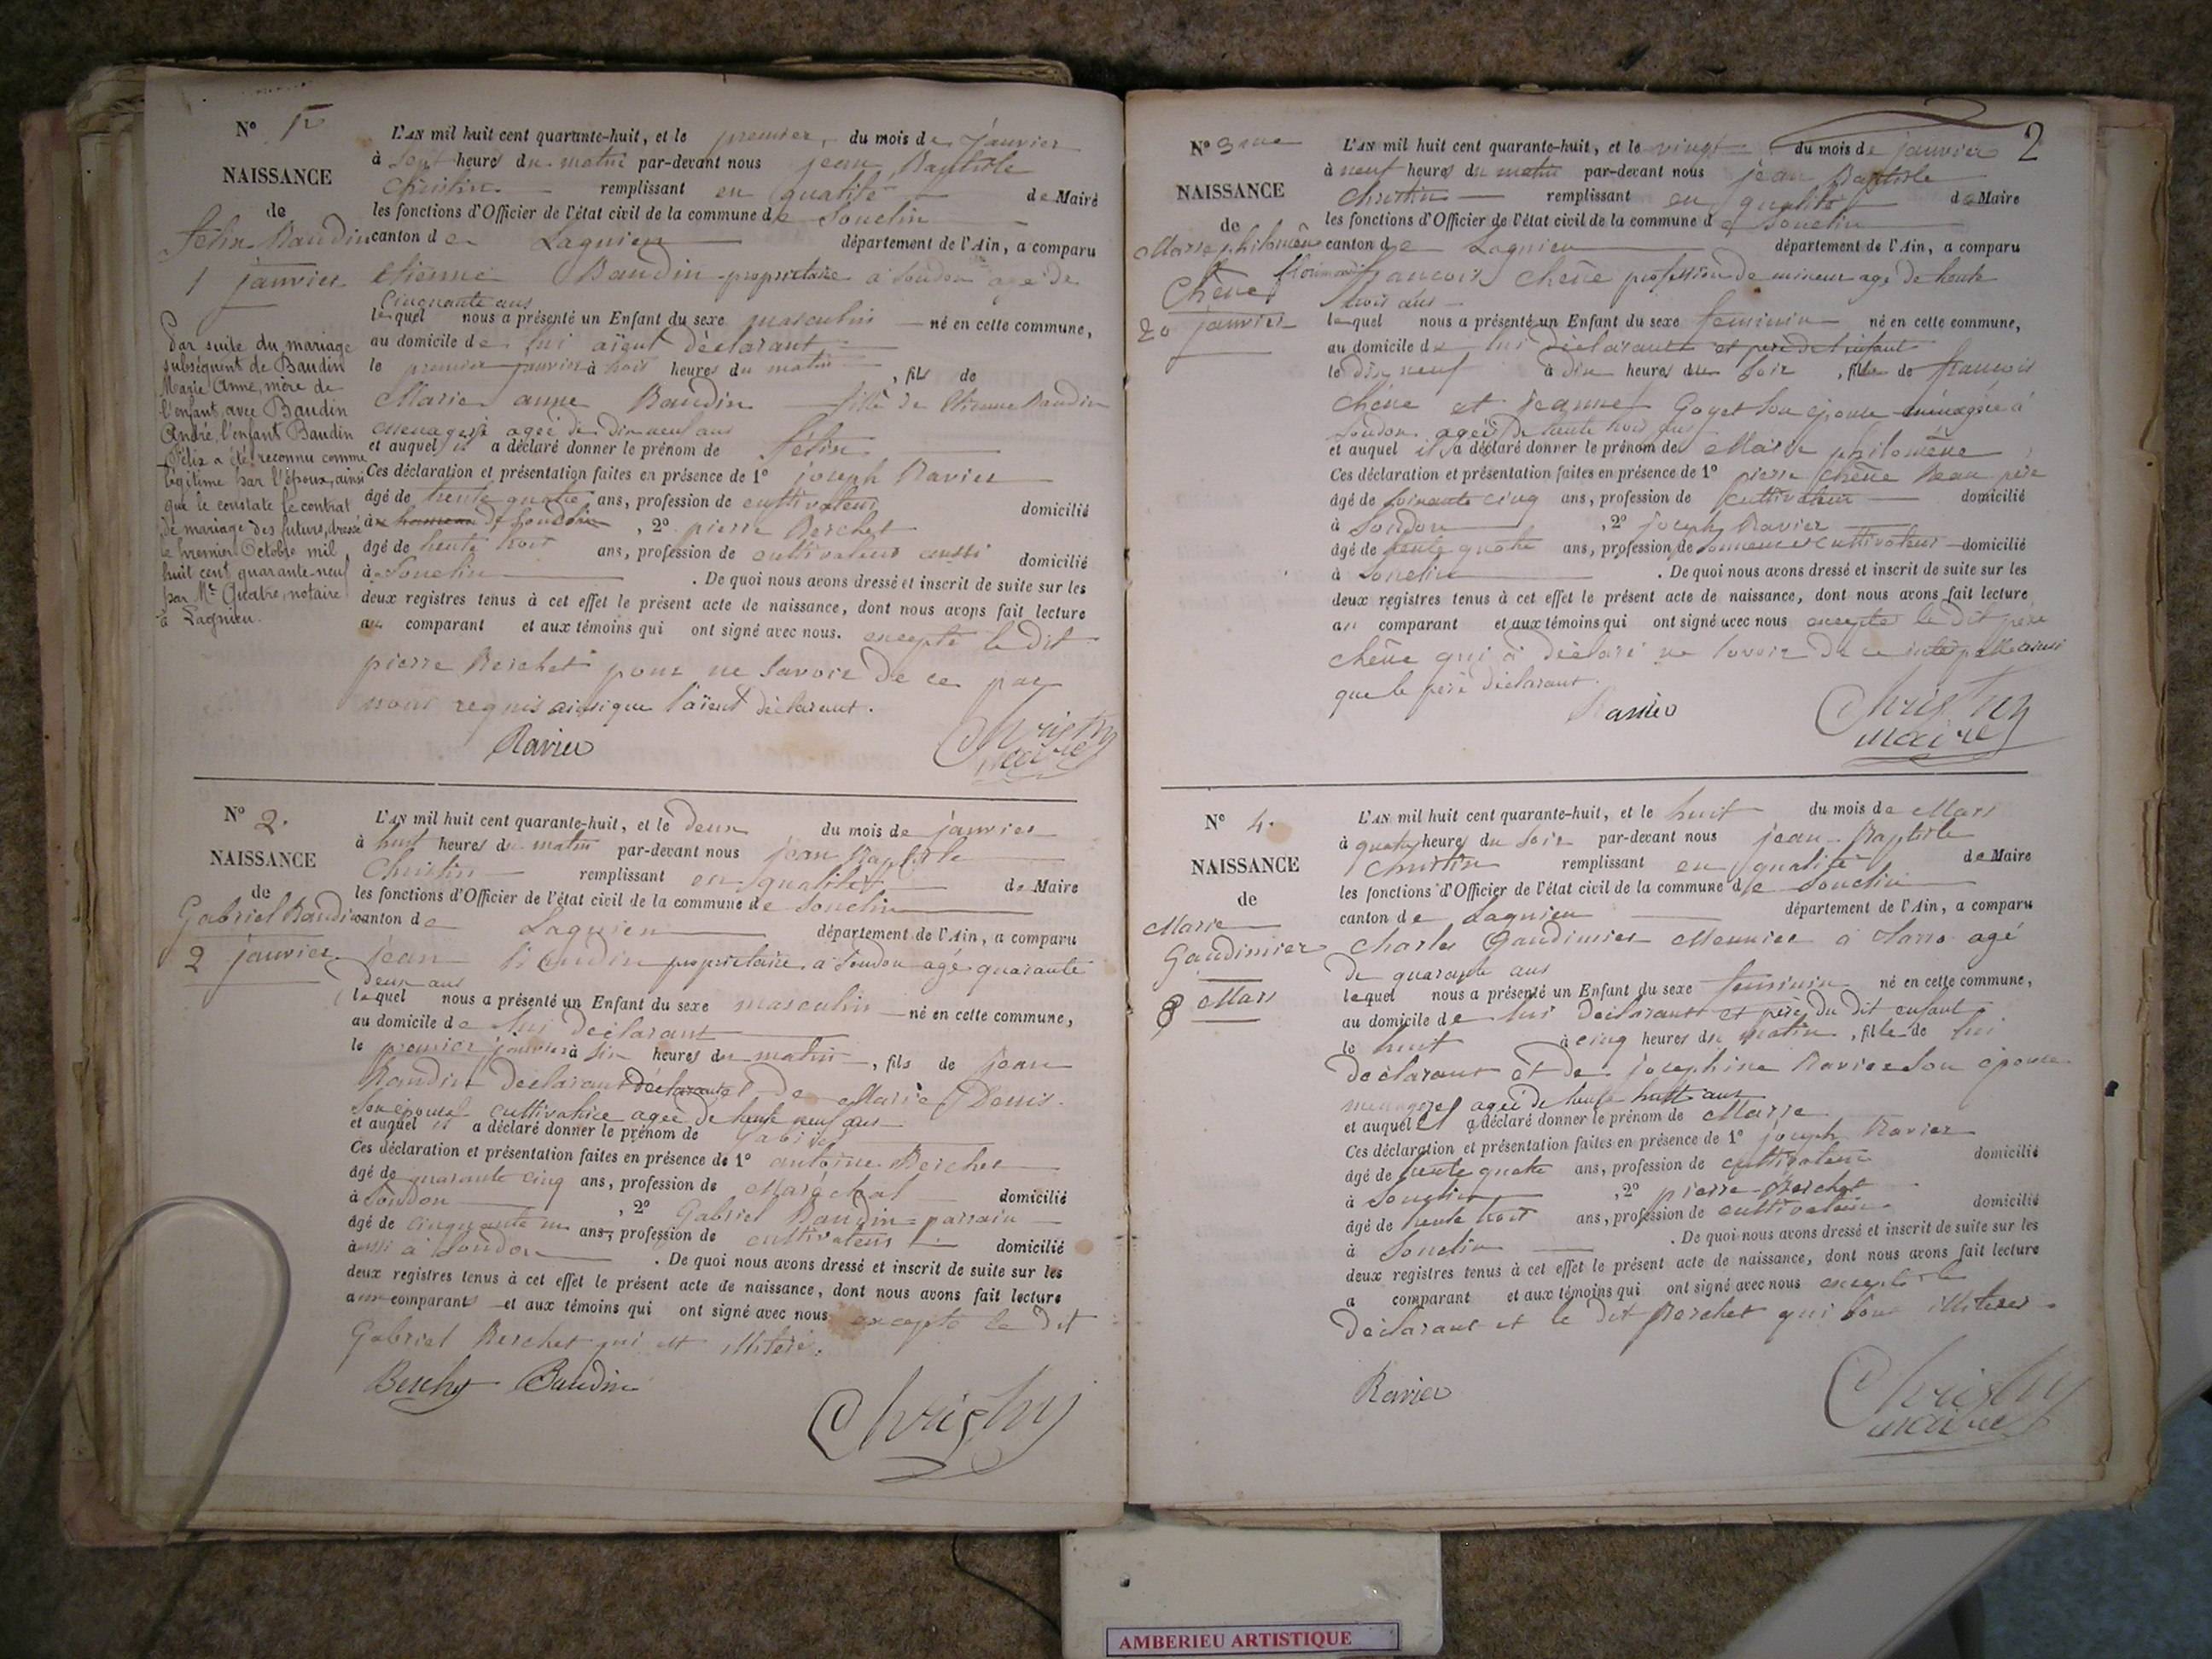 N° 1er
NAISSANCE
de
félix Baudin
1 janvier
Par suite du mariage
subséquent de Baudin
Marie Anne, mère de
l'enfant, avec Baudin
André, l'enfant Baudin
Félix a été reconnu comme
légitime par l'époux, ainsi
que le constate le contrat
de mariage des futurs, dressé
le premier Octobre mil
huit cent quarante-neuf
par Me Quatre, notaire
à Lagnieu.
L'AN mil huit cent quarante-huit, et le premier du mois de janvier
à sept heures du matin par-devant nous jean Baptiste
Christin remplissant en qualité de Maire
les fonctions d'Officier de l'état civil de la commune de Souclin
canton de Lagnieu département de l'Ain, a comparu
etienne Baudin propriétaire à Soudon agé de
cinquante ans
lequel nous a présenté un Enfant du sexe masculin né en cette commune,
au domicile de lui aïeul déclarant
le premier janvier à trois heures du matin, fils de
Marie anne Baudin fille de Etienne Baudin
menagere agée de dix neuf ans
et auquel il a déclaré donner le prénom de félix
Ces déclaration et présentation faites en présence de 1° joseph Ravier
âgé de trente quatre ans, profession de cultivateur domicilié
à Souclin, 2° pierre Berchet
âgé de trente trois ans, profession de cultivateur aussi domicilié
à Souclin. De quoi nous avons dressé et inscrit de suite sur les
deux registres tenus à cet effet le présent acte de naissance, dont nous avons fait lecture
au comparant et aux témoins qui ont signé avec nous. excepté le dit
pierre Berchet pour ne savoir de ce par
nous requis ainsi que l'aïeul déclarant.
Ravier
Christin
maire
N° 2.
NAISSANCE
de
Gabriel Baudin
2 janvier
L'AN mil huit cent quarante-huit, et le deux du mois de janvier
à huit heures du matin par-devant nous jean Baptiste
Christin remplissant en qualité de Maire
les fonctions d'Officier de l'état civil de la commune de Souclin
canton de Lagnieu département de l'Ain, a comparu
jean Baudin propriétaire à Soudon agé quarante
deux ans
lequel nous a présenté un Enfant du sexe masculin né en cette commune,
au domicile de lui déclarant
le premier janvier à six heures du matin, fils de jean
Baudin déclarant déclarant et de Marie Denis
son épouse cultivatrice agée de trente neuf ans
et auquel il a déclaré donner le prénom de Gabriel
Ces déclaration et présentation faites en présence de 1° antoine Berchet
âgé de quarante cinq ans, profession de Maréchal domicilié
à Soudon, 2° Gabriel Baudin parrain
âgé de cinquante un ans, profession de cultivateur domicilié
aussi à Soudon. De quoi nous avons dressé et inscrit de suite sur les
deux registres tenus à cet effet le présent acte de naissance, dont nous avons fait lecture
aux comparants et aux témoins qui ont signé avec nous excepté le dit
Gabriel Berchet qui est illiteré.
Berchet Baudin
Christin
2
N° 3me
NAISSANCE
de
Marie philomène
Chêne
20 janvier
L'AN mil huit cent quarante-huit, et le vingt du mois de janvier
à neuf heures du matin par-devant nous jean Baptiste
Christin remplissant en qualité de Maire
les fonctions d'Officier de l'état civil de la commune de Souclin
canton de Lagnieu département de l'Ain, a comparu
françois Chêne profession de mineur agé de trente
trois ans
lequel nous a présenté un Enfant du sexe feminin né en cette commune,
au domicile de lui déclarant et père de l'enfant
le dix neuf à dix heures du soir, fille de françois
Chêne et jeanne Goyet son épouse ménagère à
Soudon agée de trente trois ans
et auquel il a déclaré donner le prénom de Marie philomène
Ces déclaration et présentation faites en présence de 1° pierre Chêne Beau père
âgé de soixante cinq ans, profession de cultivateur domicilié
à Soudon, 2° joseph Ravier
âgé de trente quatre ans, profession de cultivateur domicilié
à Souclin. De quoi nous avons dressé et inscrit de suite sur les
deux registres tenus à cet effet le présent acte de naissance, dont nous avons fait lecture
au comparant et aux témoins qui ont signé avec nous excepter le dit père
Chêne qui a déclaré ne savoir de ce interpellé ainsi
que le père déclarant.
Ravier
Christin
maire
N° 4.
NAISSANCE
de
Marie
Gaudimier
8 Mars
L'AN mil huit cent quarante-huit, et le huit du mois de Mars
à quatre heures du soir par-devant nous jean Baptiste
Christin remplissant en qualité de Maire
les fonctions d'Officier de l'état civil de la commune de Souclin
canton de Lagnieu département de l'Ain, a comparu
Charles Gaudimier Meunier à agé
de quarante ans
lequel nous a présenté un Enfant du sexe feminin né en cette commune,
au domicile de lui déclarant et père du dit enfant
le huit à cinq heures du matin, fille de lui
déclarant et de josephine Ravier son épouse
menagere agée de trente huit ans
et auquel il a déclaré donner le prénom de Marie
Ces déclaration et présentation faites en présence de 1° joseph Ravier
âgé de trente quatre ans, profession de cultivateur domicilié
à Souclin, 2° pierre Berchet
âgé de trente trois ans, profession de cultivateur domicilié
à Souclin. De quoi nous avons dressé et inscrit de suite sur les
deux registres tenus à cet effet le présent acte de naissance, dont nous avons fait lecture
a comparant et aux témoins qui ont signé avec nous excepté le
déclarant et le dit Berchet qui sont illiterés
Ravier
Christin
maire
AMBERIEU ARTISTIQUE